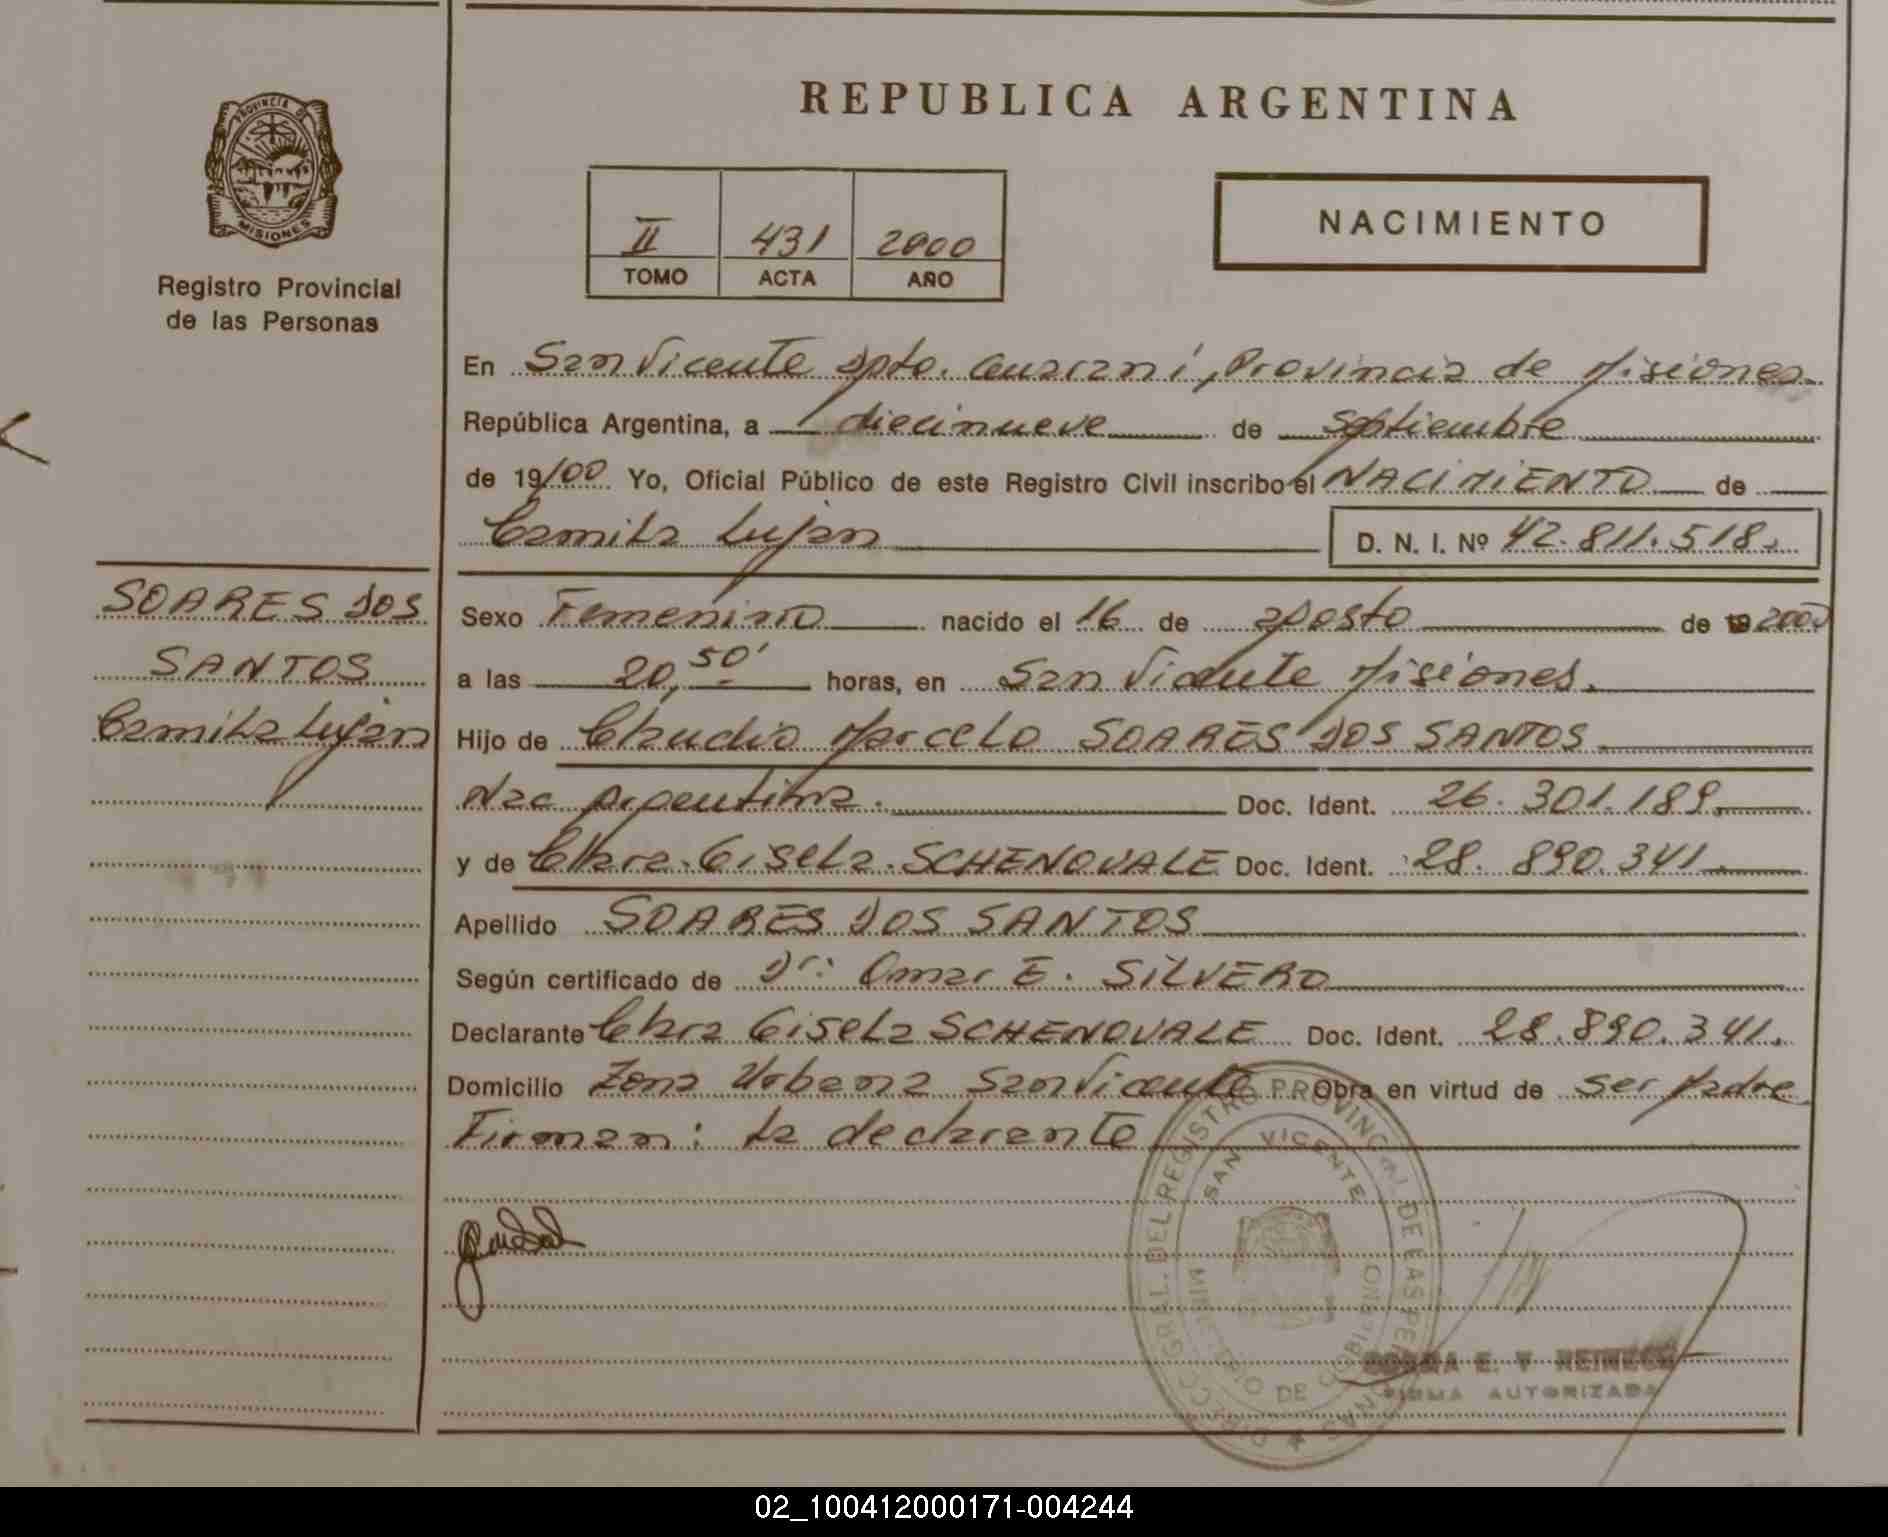 REPUBLICA ARGENTINA
PROVINCIA DE
MISIONES
Registro Provincial
de las Personas
II 431 2000
TOMO ACTA AÑO
NACIMIENTO
En San Vicente Dpto. Guaraní, Provincia de Misiones.
República Argentina, a diecinueve de septiembre
de 19/00 Yo, Oficial Público de este Registro Civil inscribo el NACIMIENTO de
Camila Luján D. N. I. Nº 42.811.518.
SOARES DOS
SANTOS
Camila Luján
Sexo Femenino nacido el 16 de agosto de 19 2000
a las 20,50' horas, en San Vicente Misiones.
Hijo de Claudio Marcelo SOARES DOS SANTOS
Nac Argentina. Doc. Ident. 26.301.189.
y de Clara Gisela SCHENOVALE Doc. Ident. 28.890.341.
Apellido SOARES DOS SANTOS
Según certificado de Dr: Omar E. SILVERO
Declarante Clara Gisela SCHENOVALE Doc. Ident. 28.890.341.
Domicilio Zona Urbana San Vicente Obra en virtud de ser Madre
Firman: La declarante
DIRECC. GRAL. DEL REGISTRO PROVINCIAL DE LAS PERSONAS
SAN VICENTE
MINISTERIO DE GOBIERNO
E. V. REINECK
FIRMA AUTORIZADA
02_100412000171-004244